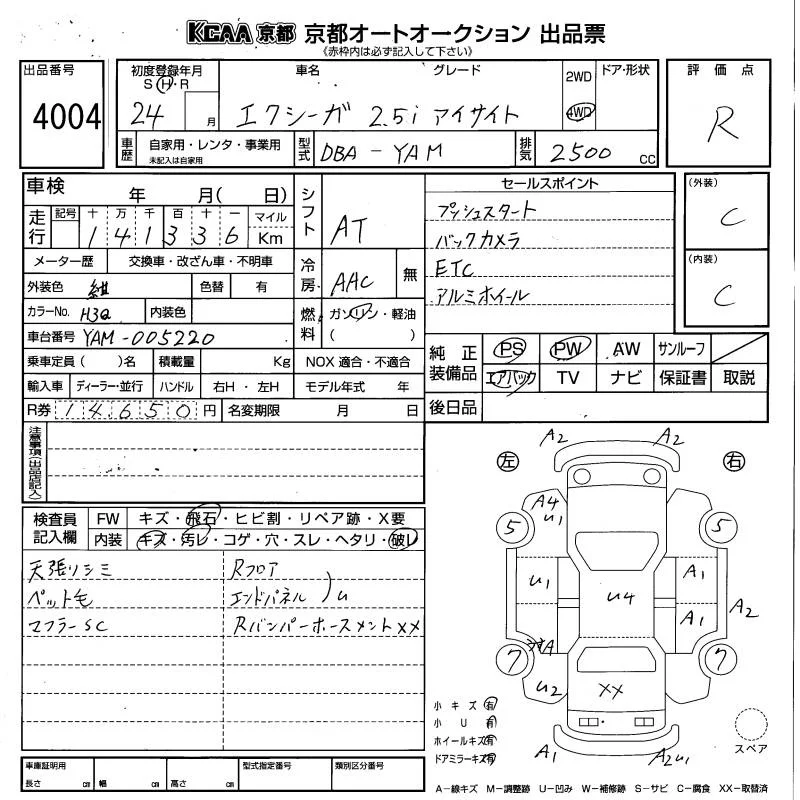 KCAA 京都 京都オートオークション 出品票
《赤枠内は必ず記入して下さい》
出品番号
4004
初度登録年月
S・H・R
24 月
車名 グレード
エクシーガ 2.5i アイサイト
2WD
4WD
ドア・形状
評価点
R
車歴
自家用・レンタ・事業用
未記入は自家用
型式
DBA-YAM
排気
2500 CC
車検 年 月( 日)
走行
記号 十 万 千 百 十 一
1 4 1 3 3 6
マイル
Km
メーター歴 交換車・改ざん車・不明車
外装色 紺 色替 有
カラーNo. H3Q 内装色
車台番号 YAM-005220
乗車定員( )名 積載量 Kg
輸入車 ディーラー・並行 ハンドル 右H・左H
R券 1 4 6 5 0 円 名変期限 月 日
シフト
AT
冷房
AAC 無
燃料
ガソリン・軽油
( )
NOX 適合・不適合
モデル年式 年
セールスポイント
プッシュスタート
バックカメラ
ETC
アルミホイール
(外装)
C
(内装)
C
純正装備品
PS PW AW サンルーフ
エアバック TV ナビ 保証書 取説
後日品
注意事項(出品店記入)
検査員記入欄
FW キズ・飛石・ヒビ割・リペア跡・X要
内装 キズ・汚レ・コゲ・穴・スレ・ヘタリ・破レ
天張リシミ Rフロア
ペット毛 エンドパネル )u
マフラーSC Rバンパーホースメントxx
左 右
A2 A2
A4
u1
5 5
u1 u4 A1
A1 A2
A
7 7
u2 xx
A1 A2
小キズ 有
小 U 有
ホイールキズ 有
ドアミラーキズ 有
スペア
車庫証明用
長さ cm 幅 cm 高さ cm
型式指定番号 類別区分番号
A−線キズ M−調整跡 U−凹み W−補修跡 S−サビ C−腐食 XX−取替済